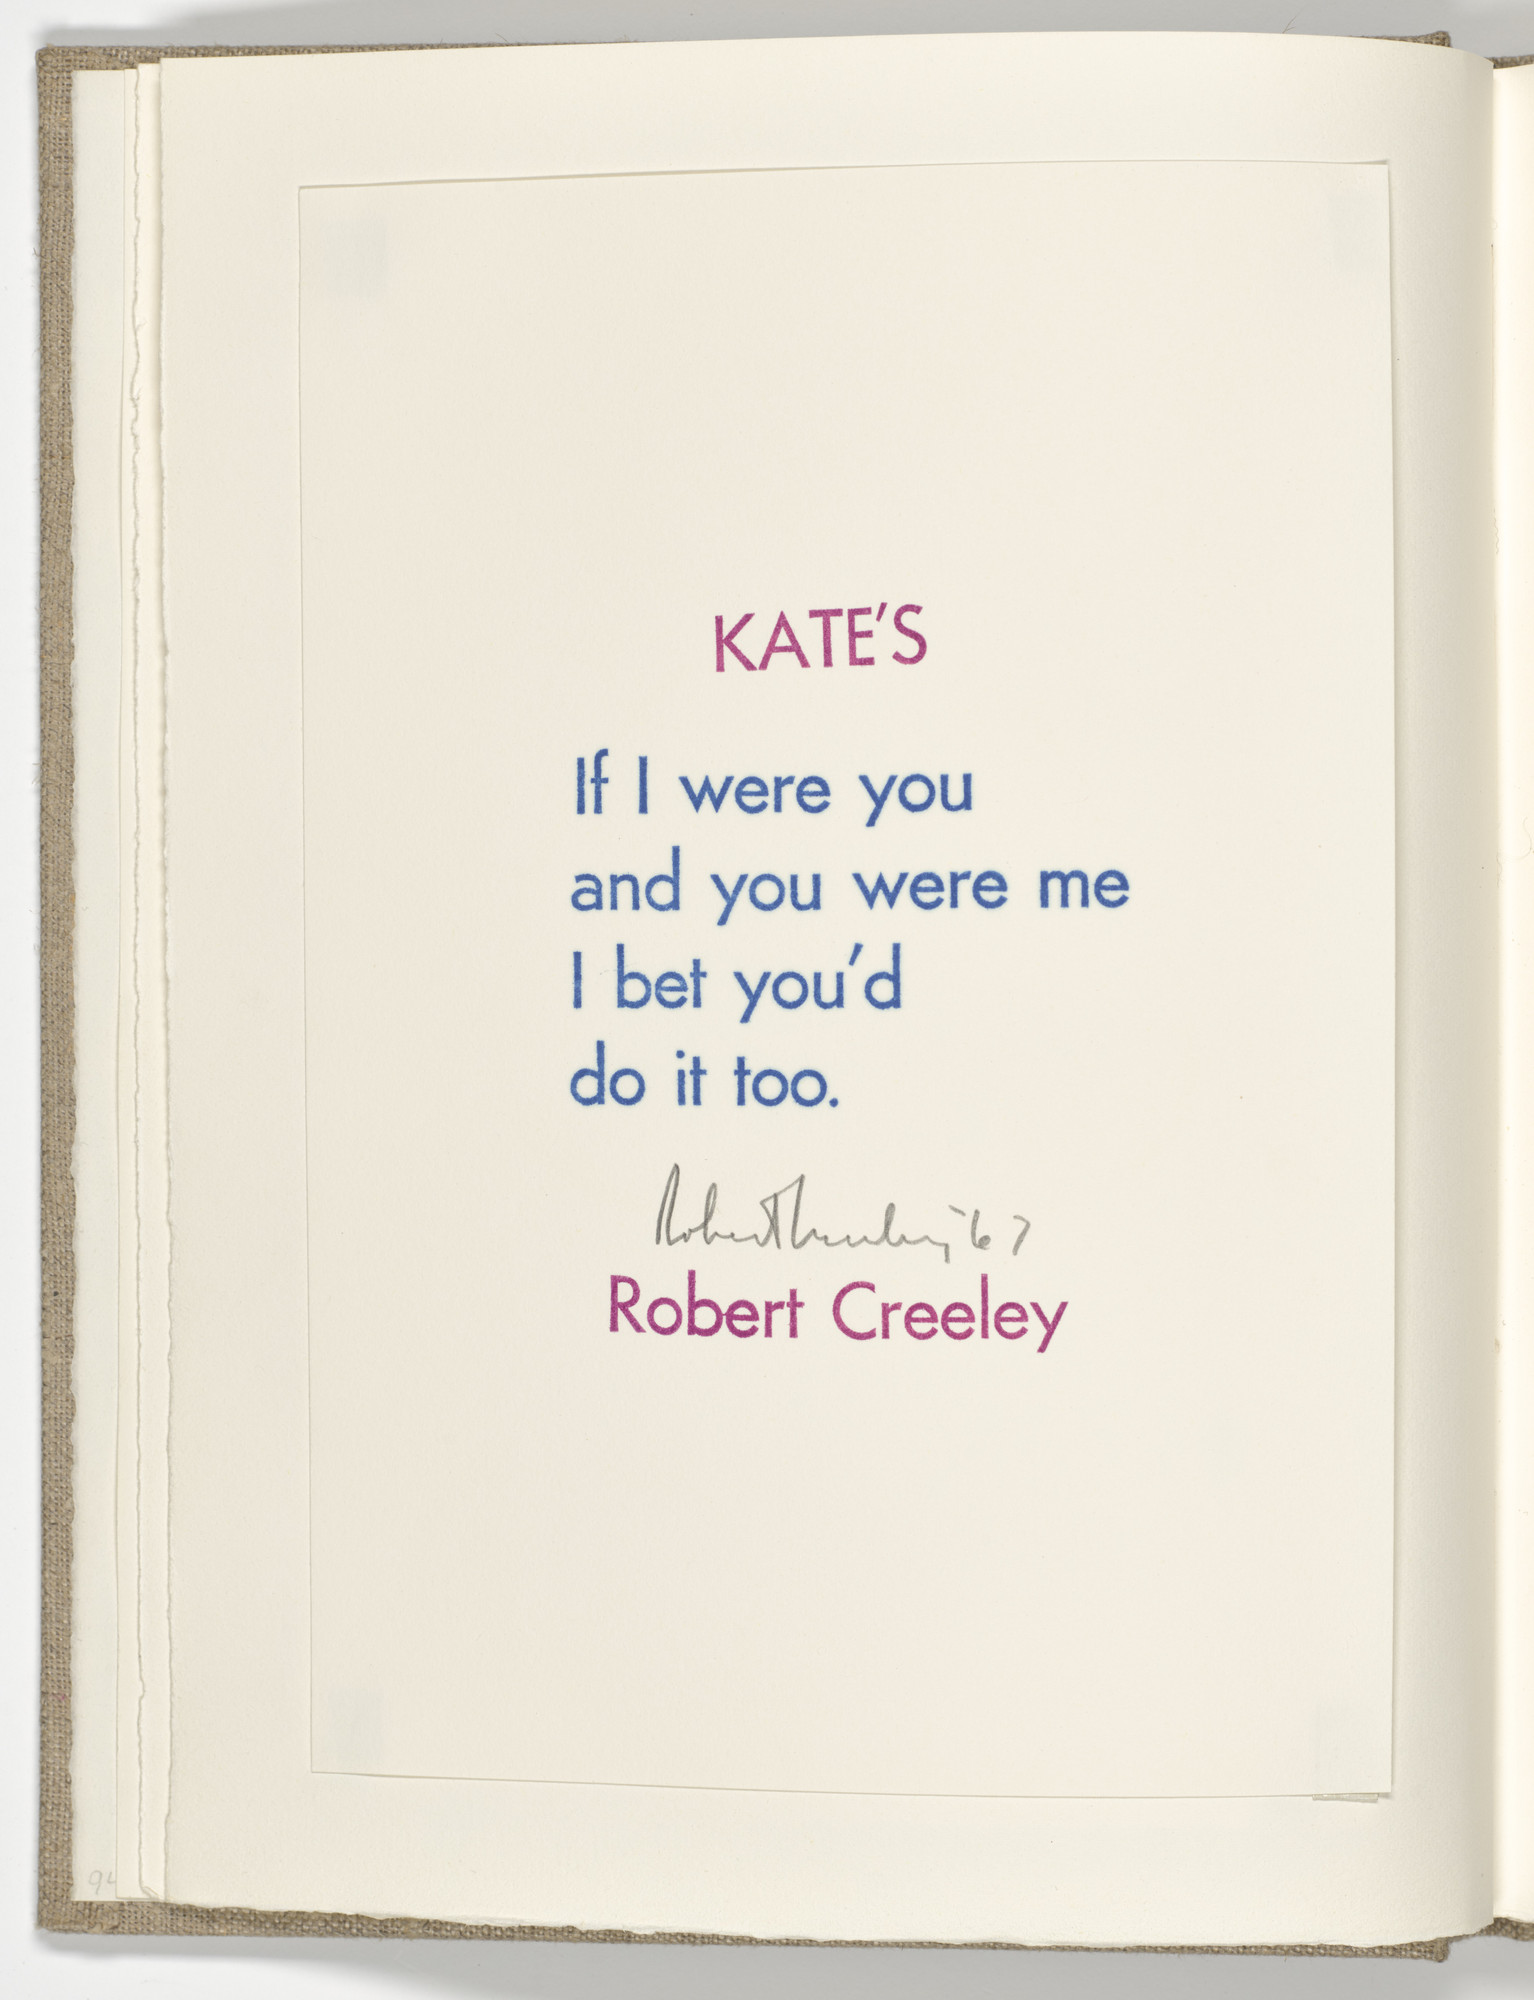 KATE'S
If I were you
and you were me
I bet you'd
do it too.
Robert Creeley '67
Robert Creeley